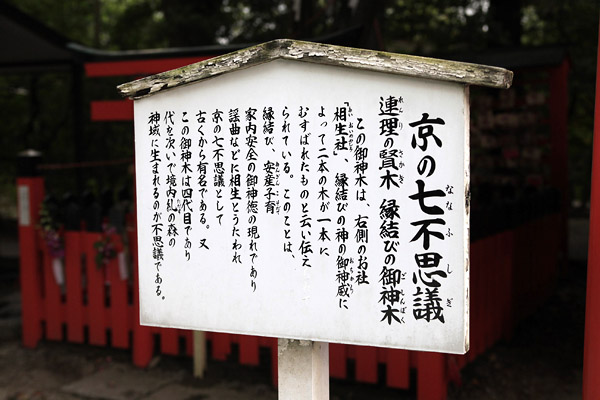 京の七不思議
連理の賢木 縁結びの御神木
この御神木は、右側のお社
「相生社」、縁結びの神の御神威に
よって二本の木が一本に
むすばれたものと云い伝え
られている。このことは、
縁結び、安産子育
家内安全の御神徳の現れであり
謡曲などに相生とうたわれ
京の七不思議として
古くから有名である。又
この御神木は四代目であり
代を次いで境内乱の森の
神域に生まれるのが不思議である。